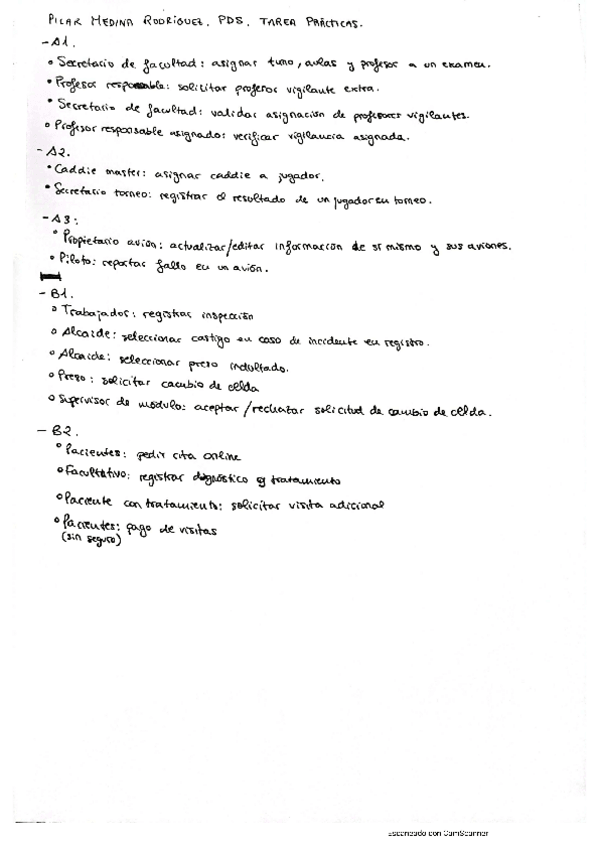 PILAR MEDINA RODRÍGUEZ. PDS. TAREA PRÁCTICAS.
- A1.
• Secretario de facultad: asignar turno, aulas y profesor a un examen.
• Profesor responsable: solicitar profesor vigilante extra.
• Secretario de facultad: validar asignación de profesores vigilantes.
• Profesor responsable asignado: verificar vigilancia asignada.
- A2.
• Caddie master: asignar caddie a jugador.
• Secretario torneo: registrar el resultado de un jugador en torneo.
- A3:
• Propietario avión: actualizar/editar información de sí mismo y sus aviones.
• Piloto: reportar fallo en un avión.
- B1.
• Trabajador: registrar inspección
• Alcaide: seleccionar castigo en caso de incidente en registro.
• Alcaide: seleccionar preso indultado.
• Preso: solicitar cambio de celda
• Supervisor de módulo: aceptar/rechazar solicitud de cambio de celda.
- B2.
• Pacientes: pedir cita online
• Facultativo: registrar diagnóstico y tratamiento
• Paciente con tratamiento: solicitar visita adicional
• Pacientes: pago de visitas
(sin seguro)
Escaneado con CamScanner